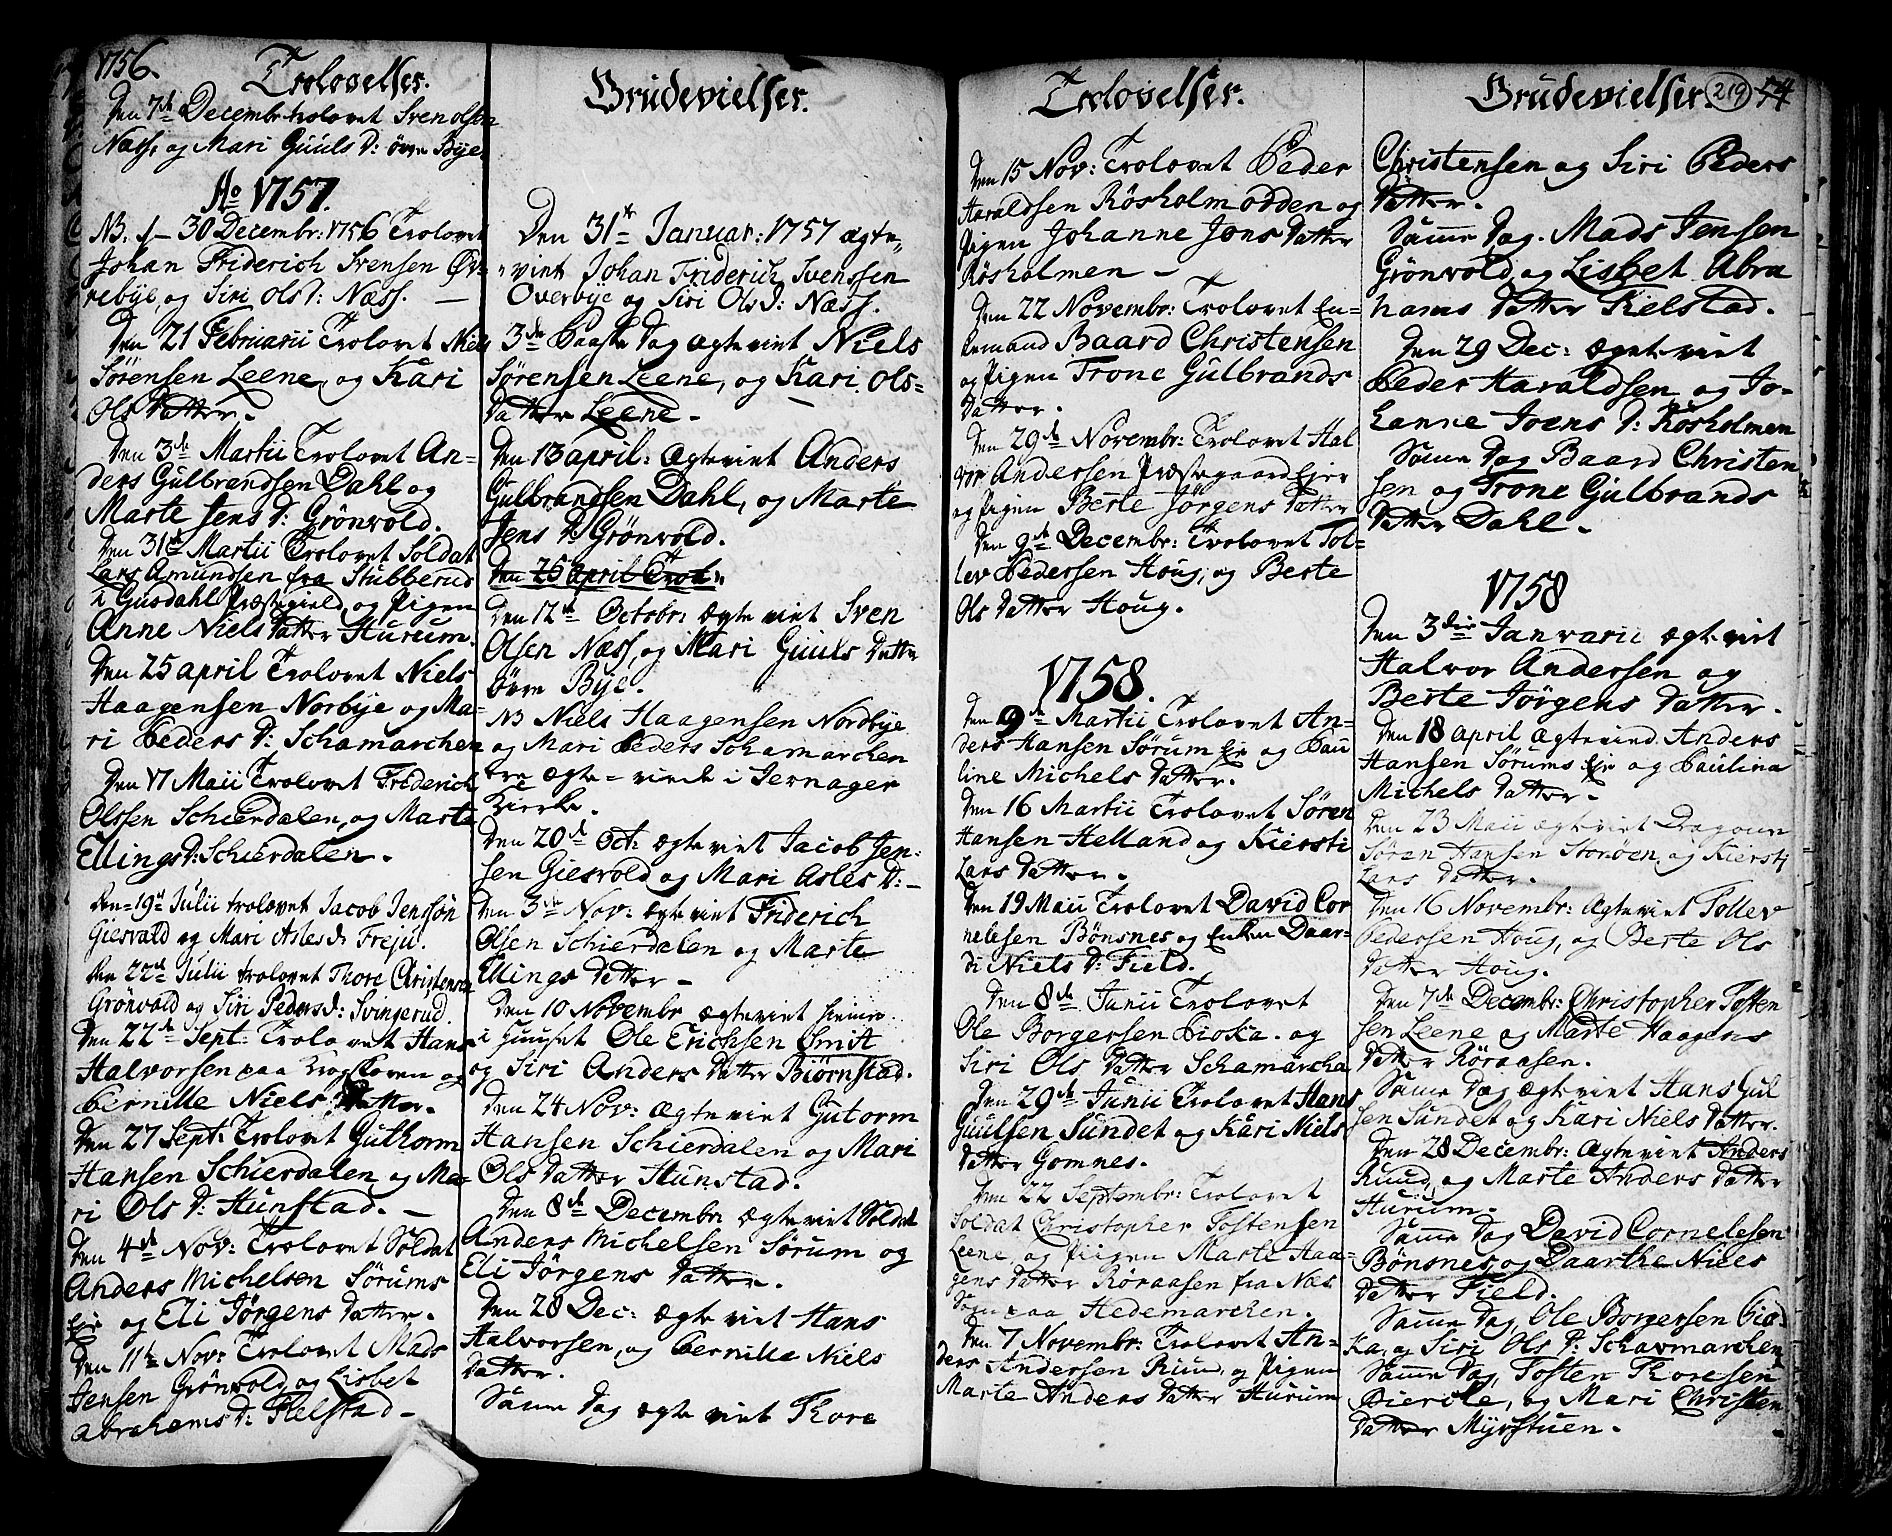 1756.
Trolovelser.
Den 7de Decembr trolovet Svenolsen
Næss, og Mari Guuls D: øvre Bÿe.
Ao 1757.
NB. 30 Decembr: 1756 Trolovet
Johan Friderich Svensen Øv-
rebÿe, og Siri Ols D: Næss. —
Den 21 Februarii Trolovet Niels
Sørensen Leene, og Kari
Ols Datter.
Den 3de Martii Trolovet An-
ders Gulbrandsen Dahl og
Marte Jens D: Grönvold.
Den 31te Martii Trolovet Soldat
Lars Amundsen fra Stubberud
i Gusdahl Præstegield, og Pigen
Anne Niels Datter Hurum.
Den 25 april Trolovet Niels
Haagensen Norbÿe og Ma-
ri Peders D: Schamarchen
Den 17 Maii Trolovet Friderich
Olssen Schierdalen, og Marte
Ellings D: Schierdalen.
Den 19de Julii trolovet Jacob Jenssøn
Giesvald og Mari Asles D: Freju.
Den 22de Julii trolovet Thore Christensen
Grönvald og Siri Peders d: Svingerud.
Den 22de Sept: Trolovet Hans
Halvorsen paa Krogskoven og
Pernille Niels Datter.
Den 27 Sept: Trolovet Guthorm
Hansen Schierdalen og Ma-
ri Ols D: Hunstad. —
Den 4de Nov: Trolovet Soldat
Anders Michelsen Sørums
Eje og Eli Jørgens Datter.
Den 11te Nov: Trolovet Mads
Jensen Grönvold og Lisbet
Abrahams D: Fielstad —
Brudevielser.
Den 31te Januar: 1757 ægte„
„viet Johan Friderich Svenssen
Overbÿe og Siri Ols D: Næss.
3de Paaske Dag ægte viet Niels
Sørensen Leene, og Kari Ols=
Datter Leene —
Den 13 april: Ægteviet Anders
Gulbrandsen Dahl, og Marte
Jens D: Grönvold.
Den 25 april Trol„
Den 12te Octobr: ægte viet Sven
Olsen Næss, og Mari Guuls Datter
øvre Bÿe.
NB Niels Haagensen Nordbÿe
og Mari Peders Schamarchen
ere ægte = viede i Jernager
Kircke.
Den 20de Oct: ægte viet Jacob Jen-
sen Giesvold og Mari Asles D: —
Den 3de Nov: ægte viet Friderich
Olsen Schierdalen og Marte
Ellings Datter —
Den 10 Novembr ægteviet hiemme
i Huuset Ole Erichsen Smit
og Siri Anders Datter Biørnstad.
Den 24 Nov: ægte viet Gutorm
Hansen Schierdalen og Mari
Ols Datter Hunstad.
Den 8de Decembr ægte viet Soldat
Anders Michelsen Sørum og
Eli Jørgens Datter.
Den 28 Dec: ægte viet Hans
Halvorsen, og Pernille Niels
Datter.
Samme Dag ægte viet Thore
Trolovelser.
Den 15 Nov: Trolovet Peder
Haraldsen Rösholmodden og
Pigen Johanne Jons Datter
Rösholmen —
Den 22 Novembr: Trolovet En-
kemand Baard Christensen
og Pigen Trone Gulbrands
Datter.
Den 29de Novembr: Trolovet Hal
vor Andersen Præstegaard Ejer
og Pigen Berte Jørgens Datter
Den 9de Decembr: Trolovet Tol=
lev Pedersen Houg, og Berte
Ols Datter Houg.
1758.
Den 9de Martii Trolovet An-
ders Hansen Sørum Eje og Pau
line Michels Datter.
Den 16 Martii Trolovet Søren
Hansen Helland og Kiersti
Lars Datter.
Den 19 Maii Trolovet David Cor
nelesen Bönsnes og Enken Daar=
di Niels D: Field.
Den 8de Junii Trolovet
Ole Borgersen Pioka. og
Siri Ols Datter Schamarcha
Den 29de Junii Trolovet Hans
Guulsen Sundet og Kari Niels
Datter Gomnes.
Den 22 Septembr: Trolovet
Soldat Christopher Tostensen
Leene og Piigen Marte Haa-
gens Datter Röraasen fra Næs
Sogn paa Hedemarchen.
Den 7 Novembr: Trolovet An-
ders Andersen Ruud, og Pigen
Marte Anders Datter Hurum
Brudevielser.
219
54
Christensen og Siri Peders
Datter.
Samme Dag. Mads Jensen
Grönvold, og Lisbet Abra
hams Datter Fielstad.
Den 29 Dec: Ægte viet
Peder Haraldsen og Jo-
hanne Joens D: Rösholmen
Samme Dag Baard Christen
sen og Trone Gulbrands
Datter Dahl —
1758
Den 3die Januarii ægte viet
Halvor Andersen og
Berte Jørgens Datter.
Den 18 april ægte vied Anders
Hansen Sørums Eje og Paulina
Michels Datter.
Den 23 Maii ægte viet Dragoun
Søren Hansen Storøen, og Kiersti
Lars Datter.
Den 16 Novembr: ægte viet Tollev
Pedersen Houg, og Berte Ols
Datter Houg.
Den 7de Decembr: Christopher Tosten
sen Leene og Marte Haagens
Datter Röraasen.
Samme Dag ægte viet Hans Gul
sen Sundet og Kari Niels Datter.
Den 28 Decembr: ægte viet Anders
Ruud, og Marte Anders Datter
Hurum.
Samme Dag David Cornelesen
Bönsnes og Daarthe Niels
Datter Field.
Samme Dag, Ole Borgersen Pio-
ka, og Siri Ols D: Schavmarchen
Samme Dag, Tosten Thoresen
Bierke, og Mari Christen
Datter Myrstuen.